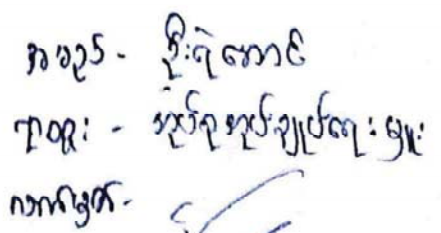 အမည် - ဦးရဲအောင်
ရာထူး - အုပ်ချုပ်ရေးမှူး
လက်မှတ် -